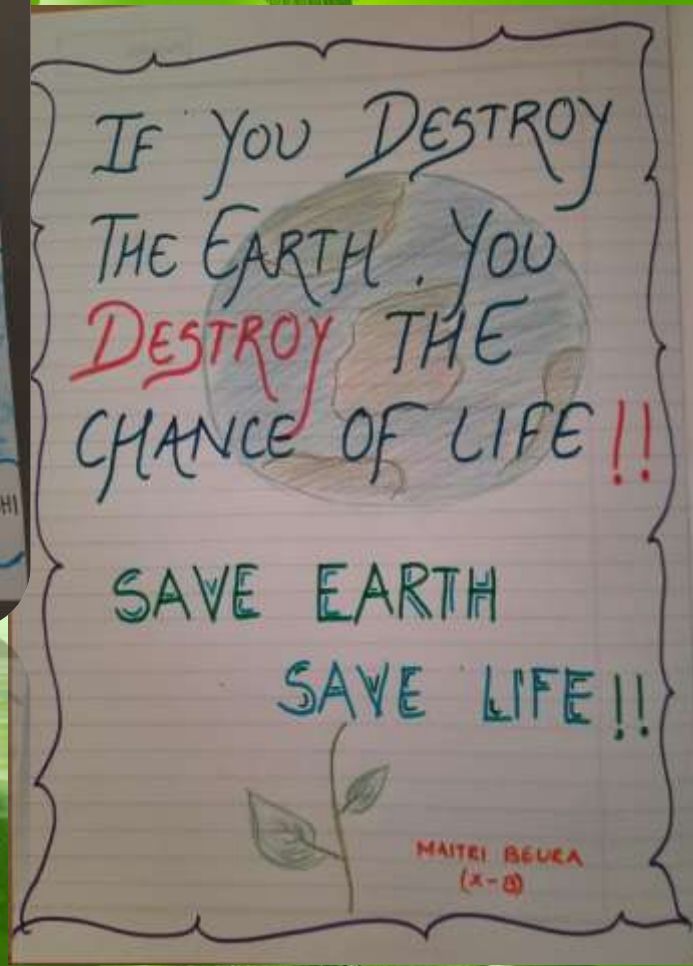 IF YOU DESTROY
THE EARTH. YOU
DESTROY THE
CHANCE OF LIFE!!
SAVE EARTH
SAVE LIFE!!
MAITRI BEURA
(X-B)
HI